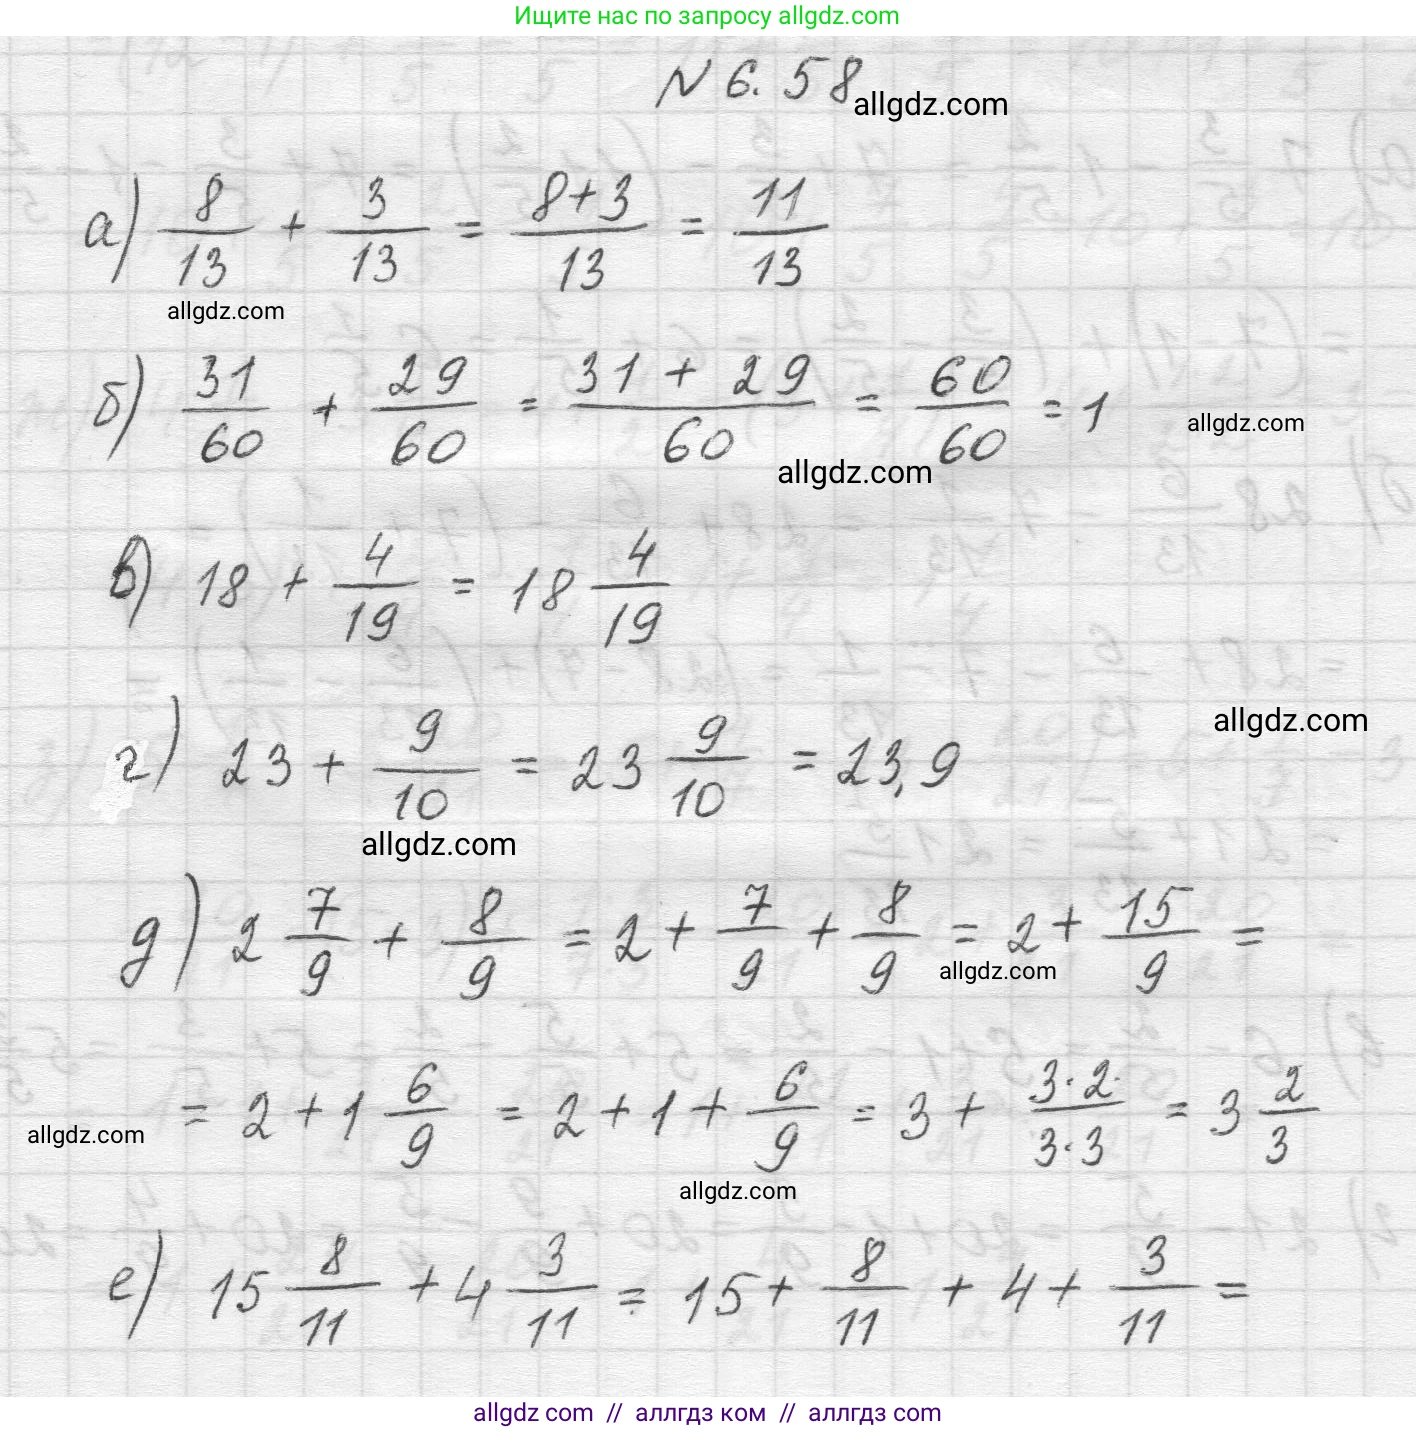 Ищите нас по запросу allgdz.com
N 6.58
allgdz.com
а) 8/13 + 3/13 = (8+3)/13 = 11/13
allgdz.com
б) 31/60 + 29/60 = (31 + 29)/60 = 60/60 = 1
allgdz.com
allgdz.com
в) 18 + 4/19 = 18 4/19
allgdz.com
г) 23 + 9/10 = 23 9/10 = 23,9
allgdz.com
д) 2 7/9 + 8/9 = 2 + 7/9 + 8/9 = 2 + 15/9 =
allgdz.com
= 2 + 1 6/9 = 2 + 1 + 6/9 = 3 + (3·2)/(3·3) = 3 2/3
allgdz.com
allgdz.com
е) 15 8/11 + 4 3/11 = 15 + 8/11 + 4 + 3/11 =
allgdz com // аллгдз ком // allgdz com